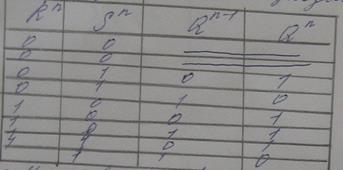 R^n S^n Q^{n-1} Q^n
0 0
0 0
0 1 0 1
0 1 1 0
1 0 0 1
1 0 1 1
1 1 0 1
1 1 1 0